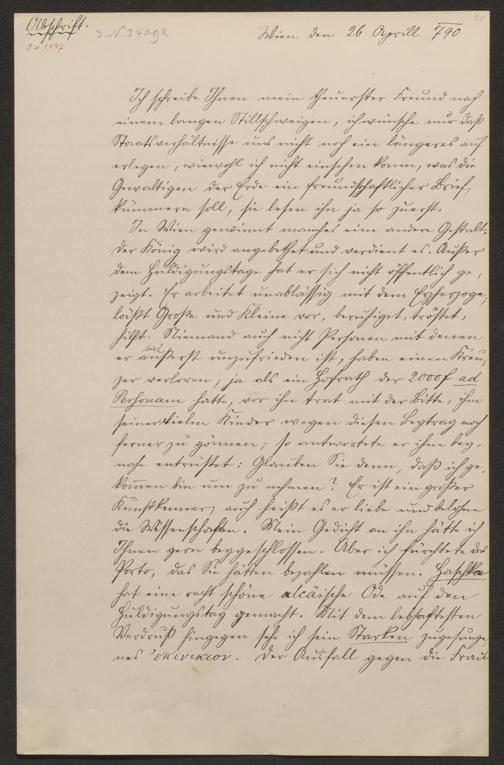 Abschrift.
Wien den 26 Aprill 790
Ich schreibe Ihnen mein theuerster Freund nach
einem langen Stillschweigen, ich wünsche nur daß
Staatsverhältnisse uns nicht noch ein längeres auf
erlegen, wiewohl ich nicht einsehen kann, was die
Gewaltigen der Erde ein freundschaftlicher Brief
kümmern soll, sie lesen ihn ja so zuerst.
In Wien gewinnt manches eine andere Gestalt.
Der König wird angebethet und verdient es. Außer
dem Huldigungstage hat er sich nicht öffentlich ge-
zeigt. Er arbeitet unablässig mit dem Erzherzoge,
läßt Große und Kleine vor, beruhiget, tröstet,
hilft. Niemand auch nicht Personen mit denen
er äußerst unzufrieden ist, haben einen Kreu-
zer verloren, ja als ein Hofrath der 2000f ad
Personam hatte, vor ihn trat mit der Bitte, ihm
seiner vielen Kinder wegen diesen Beytrag noch
ferner zu gönnen; so antwortete er ihm bey-
nahe entrüstet: Glauben Sie denn, daß ich ge-
kommen bin um zu nehmen? Er ist ein großer
Kunstkenner, auch heißt es er liebe und belohne
die Wissenschaften. Mein Gedicht an ihn hätte ich
Ihnen gern beygeschlossen. Aber ich fürchtete das
Porto, das Sie hätten bezahlen müssen. Haschka
hat eine recht schöne alcäische Ode auf den
Huldigungstag gemacht. Mit dem lebhaftesten
Verdruß hingegen sehe ich sein Starken zugesunge-
nes επινικιον. Der Ausfall gegen die Frau